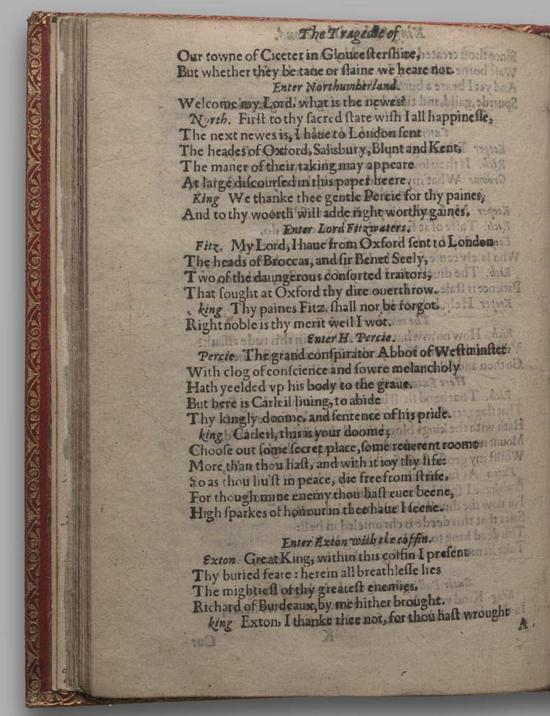 The Tragedie of
Our towne of Ciceter in Gloucestershire,
But whether they be tane or slaine we heare not.
Enter Northumberland.
Welcome my Lord, what is the newes?
North. First to thy sacred state wish I all happinesse,
The next newes is, I haue to London sent
The heades of Oxford, Salisbury, Blunt and Kent,
The maner of their taking may appeare
At large discoursed in this paper heere.
King We thanke thee gentle Percie for thy paines,
And to thy woorth will adde right worthy gaines.
Enter Lord Fitzwaters.
Fitz. My Lord, I haue from Oxford sent to London
The heads of Broccas, and sir Benet Seely,
Two of the daungerous consorted traitors,
That sought at Oxford thy dire ouerthrow.
king Thy paines Fitz. shall not be forgot.
Right noble is thy merit well I wot.
Enter H. Percie.
Percie. The grand conspirator Abbot of Westminster
With clog of conscience and sowre melancholy
Hath yeelded vp his body to the graue.
But here is Carleil liuing, to abide
Thy kingly doome, and sentence of his pride.
king Carleil, this is your doome;
Choose out some secret place, some reuerent roome
More than thou hast, and with it ioy thy life:
So as thou liu'st in peace, die free from strife,
For though mine enemy thou hast euer beene,
High sparkes of honour in thee haue I seene.
Enter Exton with the coffin.
Exton Great King, within this coffin I present
Thy buried feare: herein all breathlesse lies
The mightiest of thy greatest enemies,
Richard of Burdeaux, by me hither brought.
king Exton, I thanke thee not, for thou hast wrought
A